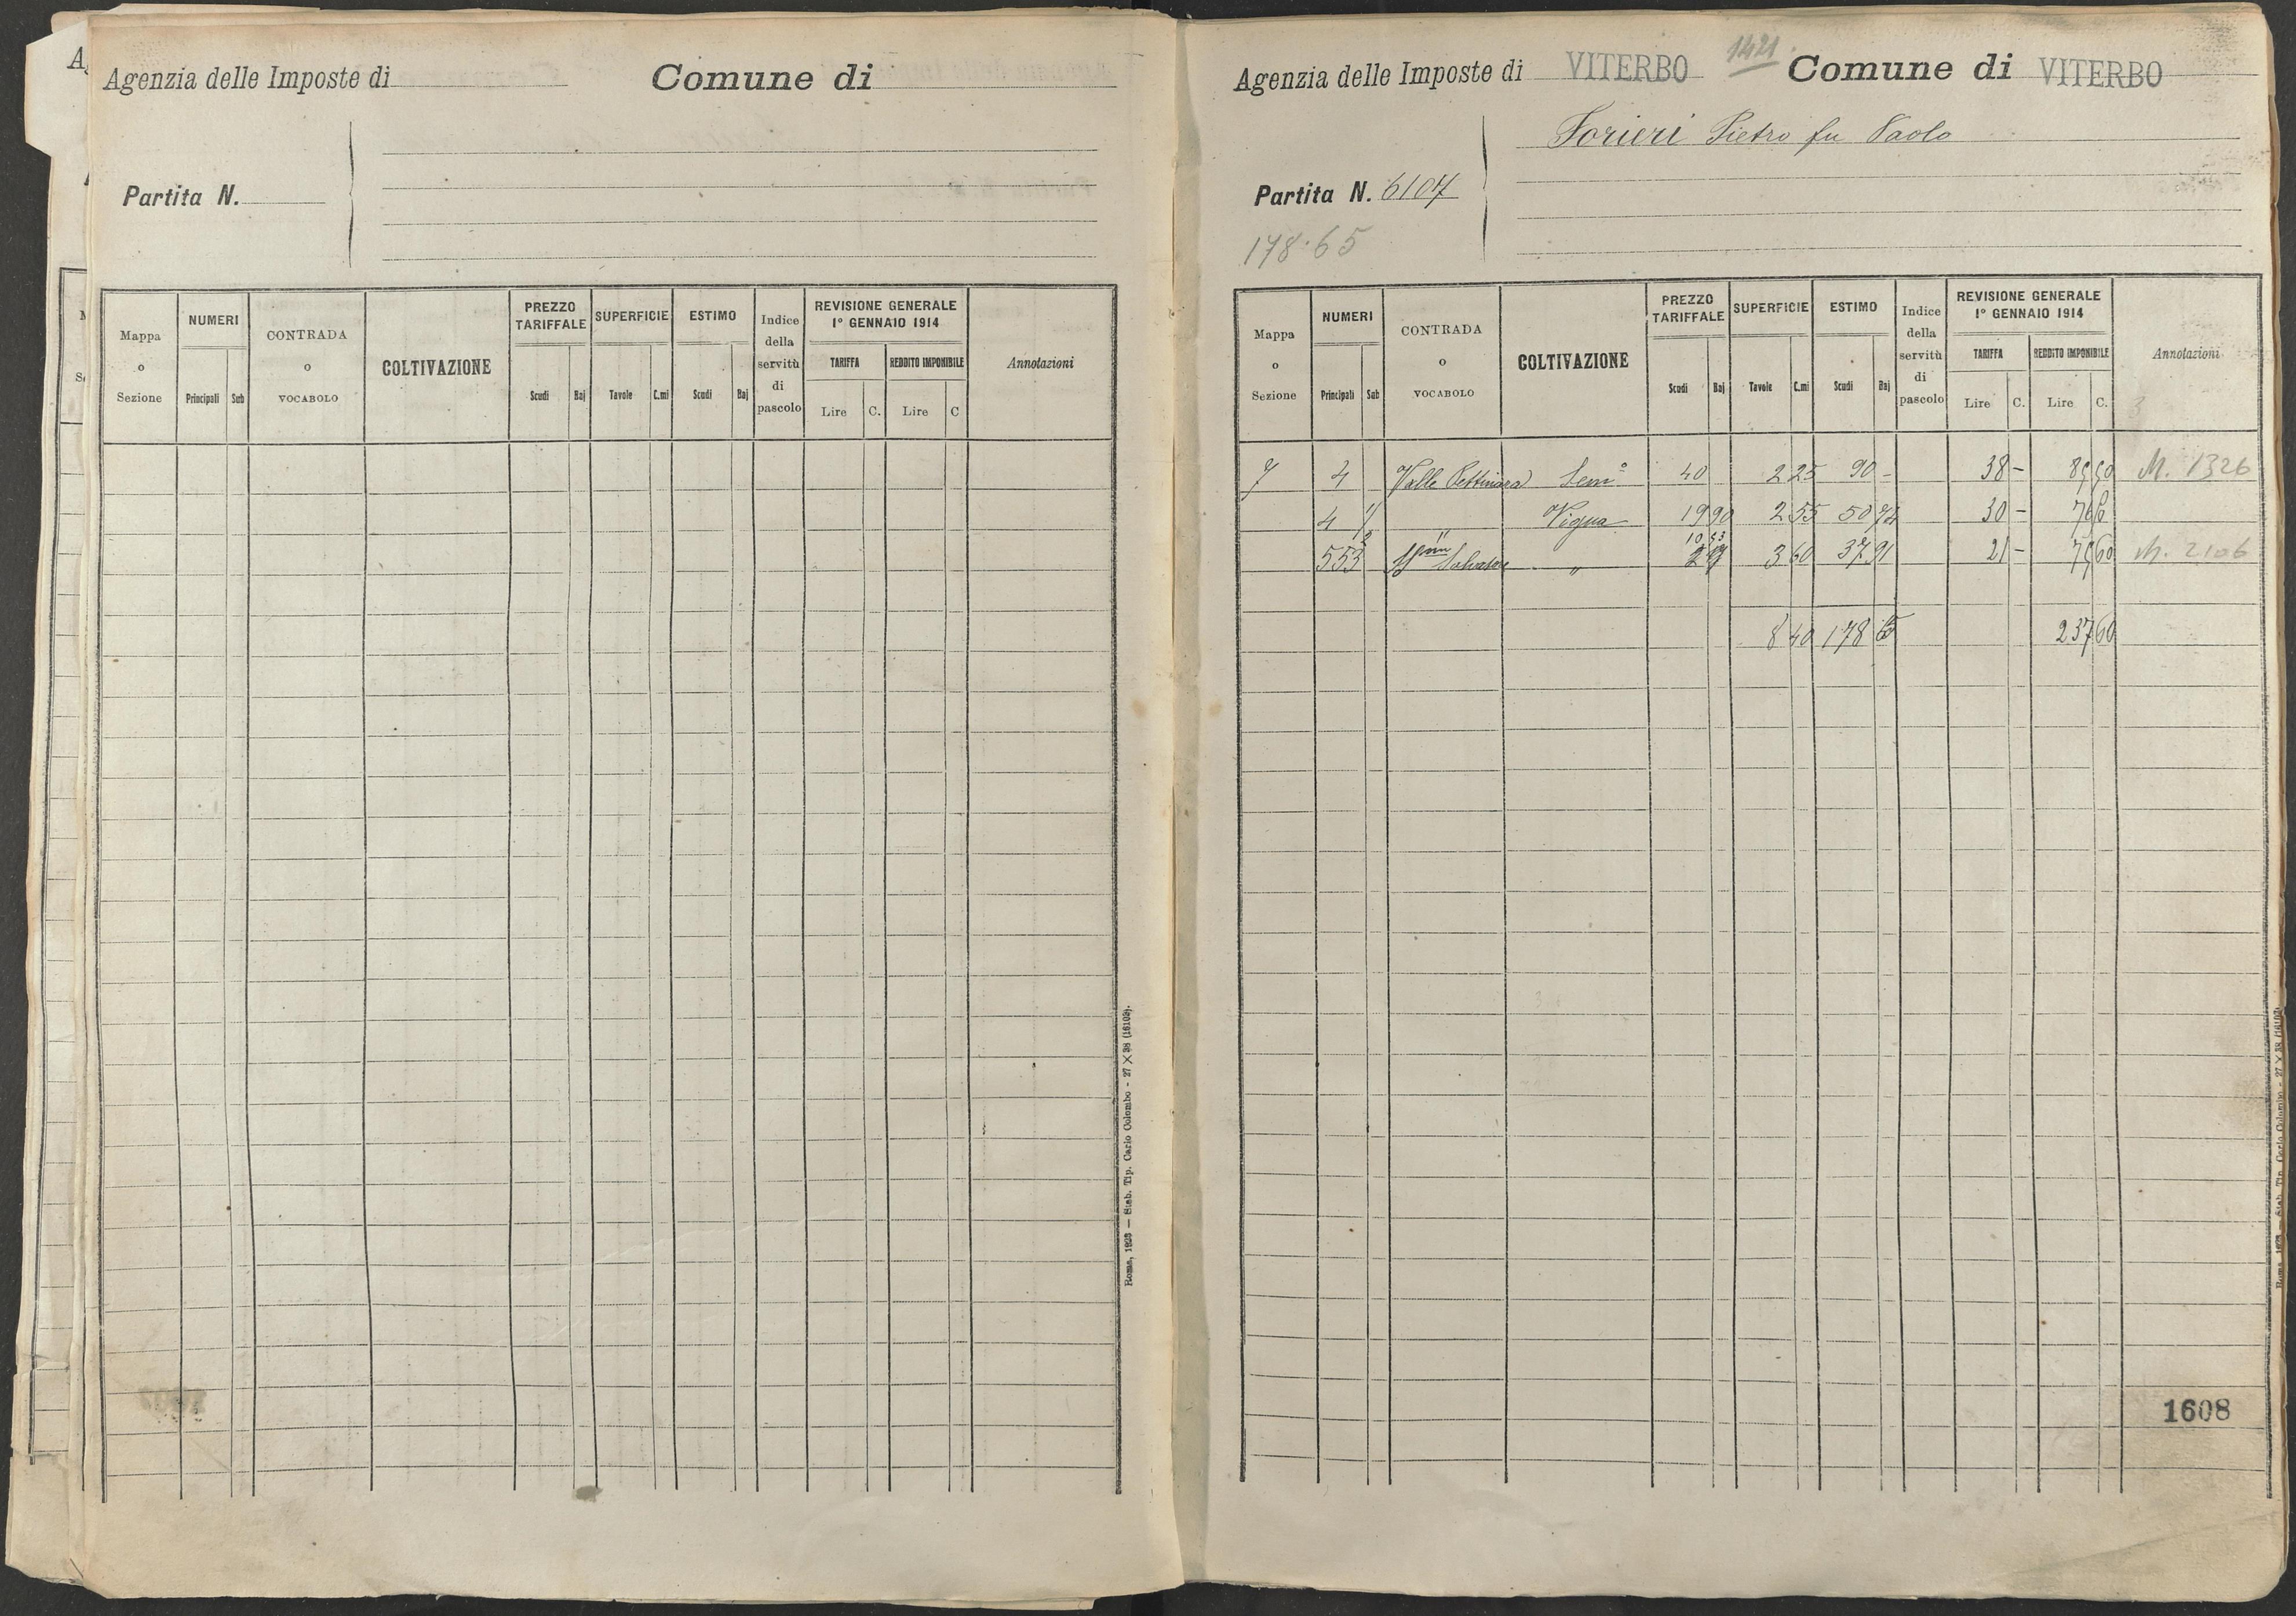 Agenzia delle Imposte di
Comune di
Partita N.
Mappa o Sezione
NUMERI
Principali Sub
CONTRADA o VOCABOLO
COLTIVAZIONE
PREZZO TARIFFALE
Scudi Baj
SUPERFICIE
Tavole C.mi
ESTIMO
Scudi Baj
Indice della servitù di pascolo
REVISIONE GENERALE
1° GENNAIO 1914
TARIFFA
Lire C.
REDDITO IMPONIBILE
Lire C
Annotazioni
Roma, 1923 — Stab. Tip. Carlo Colombo - 27 X 38 (16102).
Agenzia delle Imposte di VITERBO
1421
Comune di VITERBO
Forieri Pietro fu Paolo
Partita N. 6107
178.65
Mappa o Sezione
NUMERI
Principali Sub
CONTRADA o VOCABOLO
COLTIVAZIONE
PREZZO TARIFFALE
Scudi Baj
SUPERFICIE
Tavole C.mi
ESTIMO
Scudi Baj
Indice della servitù di pascolo
REVISIONE GENERALE
1° GENNAIO 1914
TARIFFA
Lire C.
REDDITO IMPONIBILE
Lire C.
Annotazioni
3
7 4 Valle Pettinara Sem° 40 2 25 90 - 38 - 85 50 M. 1326
4 1/2 " Vigna 19 90 2 55 50 74 30 - 76 5
553 SSmo Salvatore " 10 53 3 60 37 91 21 - 75 60 M. 2106
8 40 178 65 237 60
1608
Roma, 1923 — Stab. Tip. Carlo Colombo - 27 X 38 (16102)